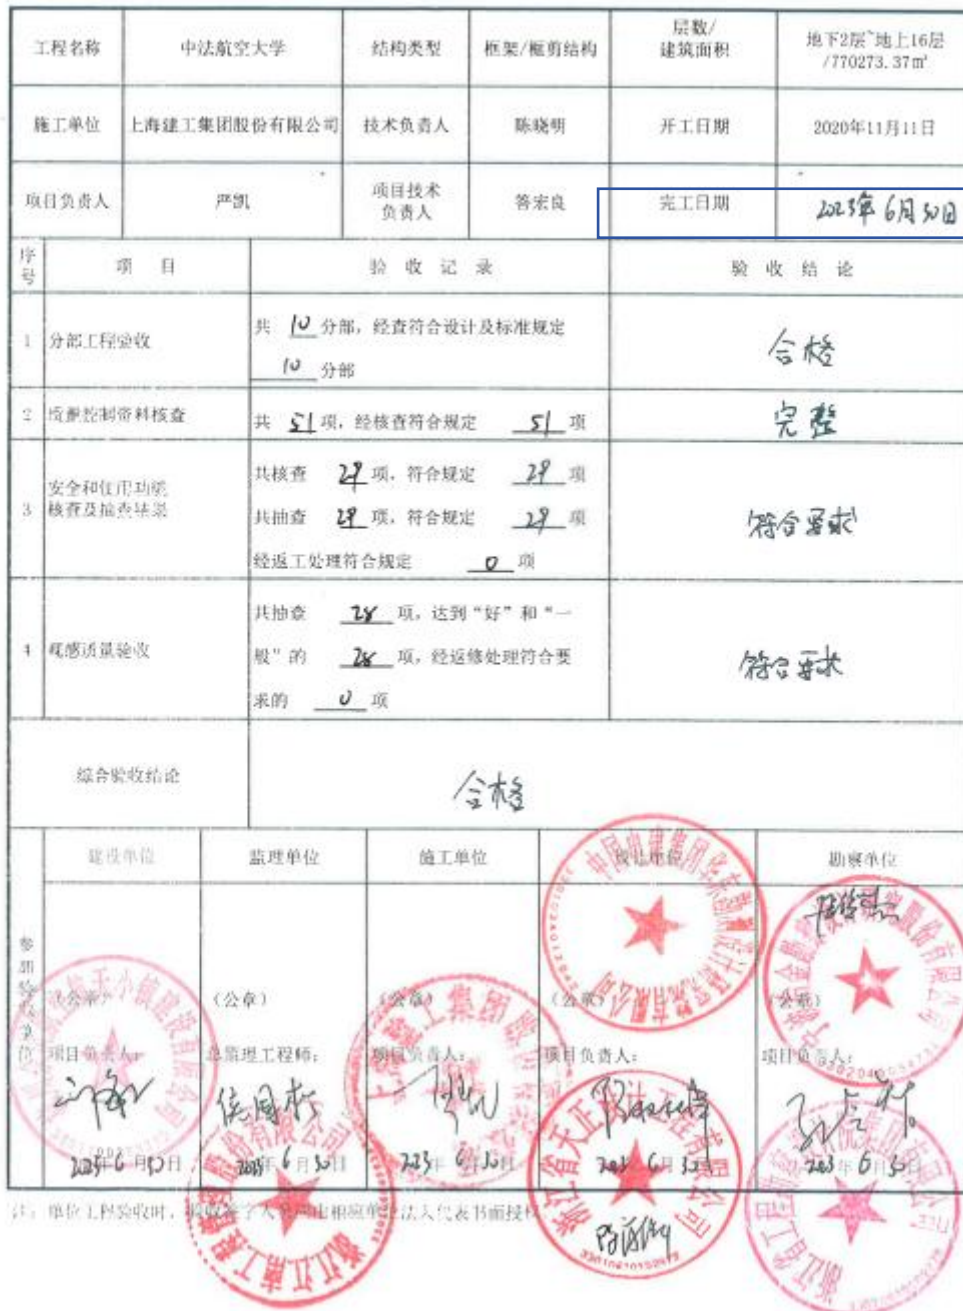 工程名称 中法航空大学 结构类型 框架/框剪结构 层数/建筑面积 地下2层~地上16层/770273.37㎡
施工单位 上海建工集团股份有限公司 技术负责人 陈晓明 开工日期 2020年11月11日
项目负责人 严凯 项目技术负责人 答宏良 完工日期 2023年6月30日
序号 项目 验收记录 验收结论
1 分部工程验收 共 10 分部，经查符合设计及标准规定
10 分部 合格
2 质量控制资料核查 共 51 项，经核查符合规定 51 项 完整
3 安全和使用功能
核查及抽查结果
共核查 29 项，符合规定 29 项
共抽查 29 项，符合规定 29 项
经返工处理符合规定 0 项
符合要求
4 观感质量验收
共抽查 28 项，达到“好”和“一
般”的 28 项，经返修处理符合要
求的 0 项
符合要求
综合验收结论 合格
参加验收单位
建设单位 监理单位 施工单位 设计单位 勘察单位
（公章） （公章） （公章） （公章） （公章）
项目负责人： 总监理工程师： 项目负责人： 项目负责人： 项目负责人：
2023年6月30日 2023年6月30日 2023年6月30日 2023年6月30日 2023年6月30日
注：单位工程验收时，验收签字人员应由相应单位法人代表书面授权